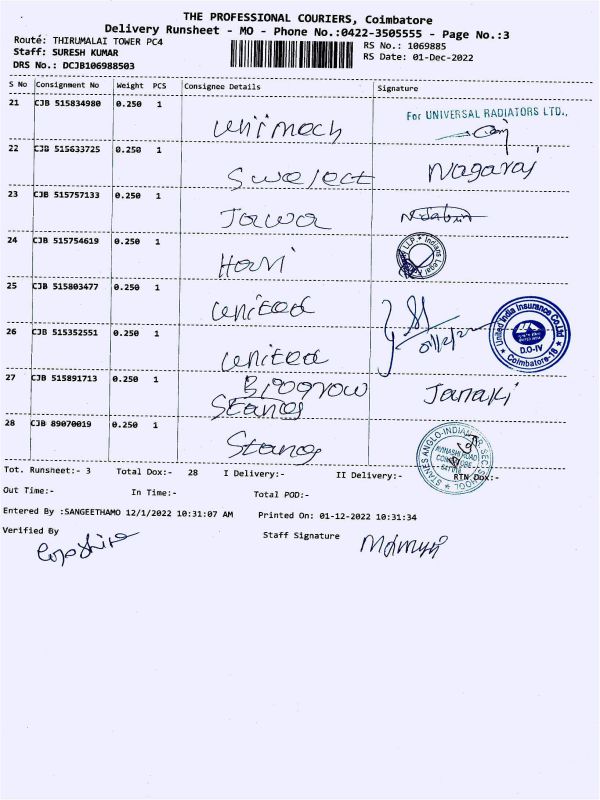 THE PROFESSIONAL COURIERS, Coimbatore
Delivery Runsheet - MO - Phone No.:0422-3505555 - Page No.:3
Route: THIRUMALAI TOWER PC4
RS No.: 1069885
Staff: SURESH KUMAR
RS Date: 01-Dec-2022
DRS No.: DCJB106988503
S No Consignment No Weight PCS Consignee Details Signature
21 CJB 515834980 0.250 1 For UNIVERSAL RADIATORS LTD.,
Unimech
22 CJB 515633725 0.250 1 Nagaraj
Swelect
23 CJB 515757133 0.250 1
Jawa
24 CJB 515754619 0.250 1
Hari
25 CJB 515803477 0.250 1
United
26 CJB 515352551 0.250 1 United India Insurance Co.Ltd D.O-IV Coimbatore-18
United
27 CJB 515891713 0.250 1 Janaki
Stanes
28 CJB 89070019 0.250 1 STANES ANGLO-INDIAN HR. SEC. SCHOOL AVINASHI ROAD
Stanes
Tot. Runsheet:- 3 Total Dox:- 28 I Delivery:- II Delivery:- RTN Dox:-
Out Time:- In Time:- Total POD:-
Entered By :SANGEETHAMO 12/1/2022 10:31:07 AM Printed On: 01-12-2022 10:31:34
Verified By Staff Signature